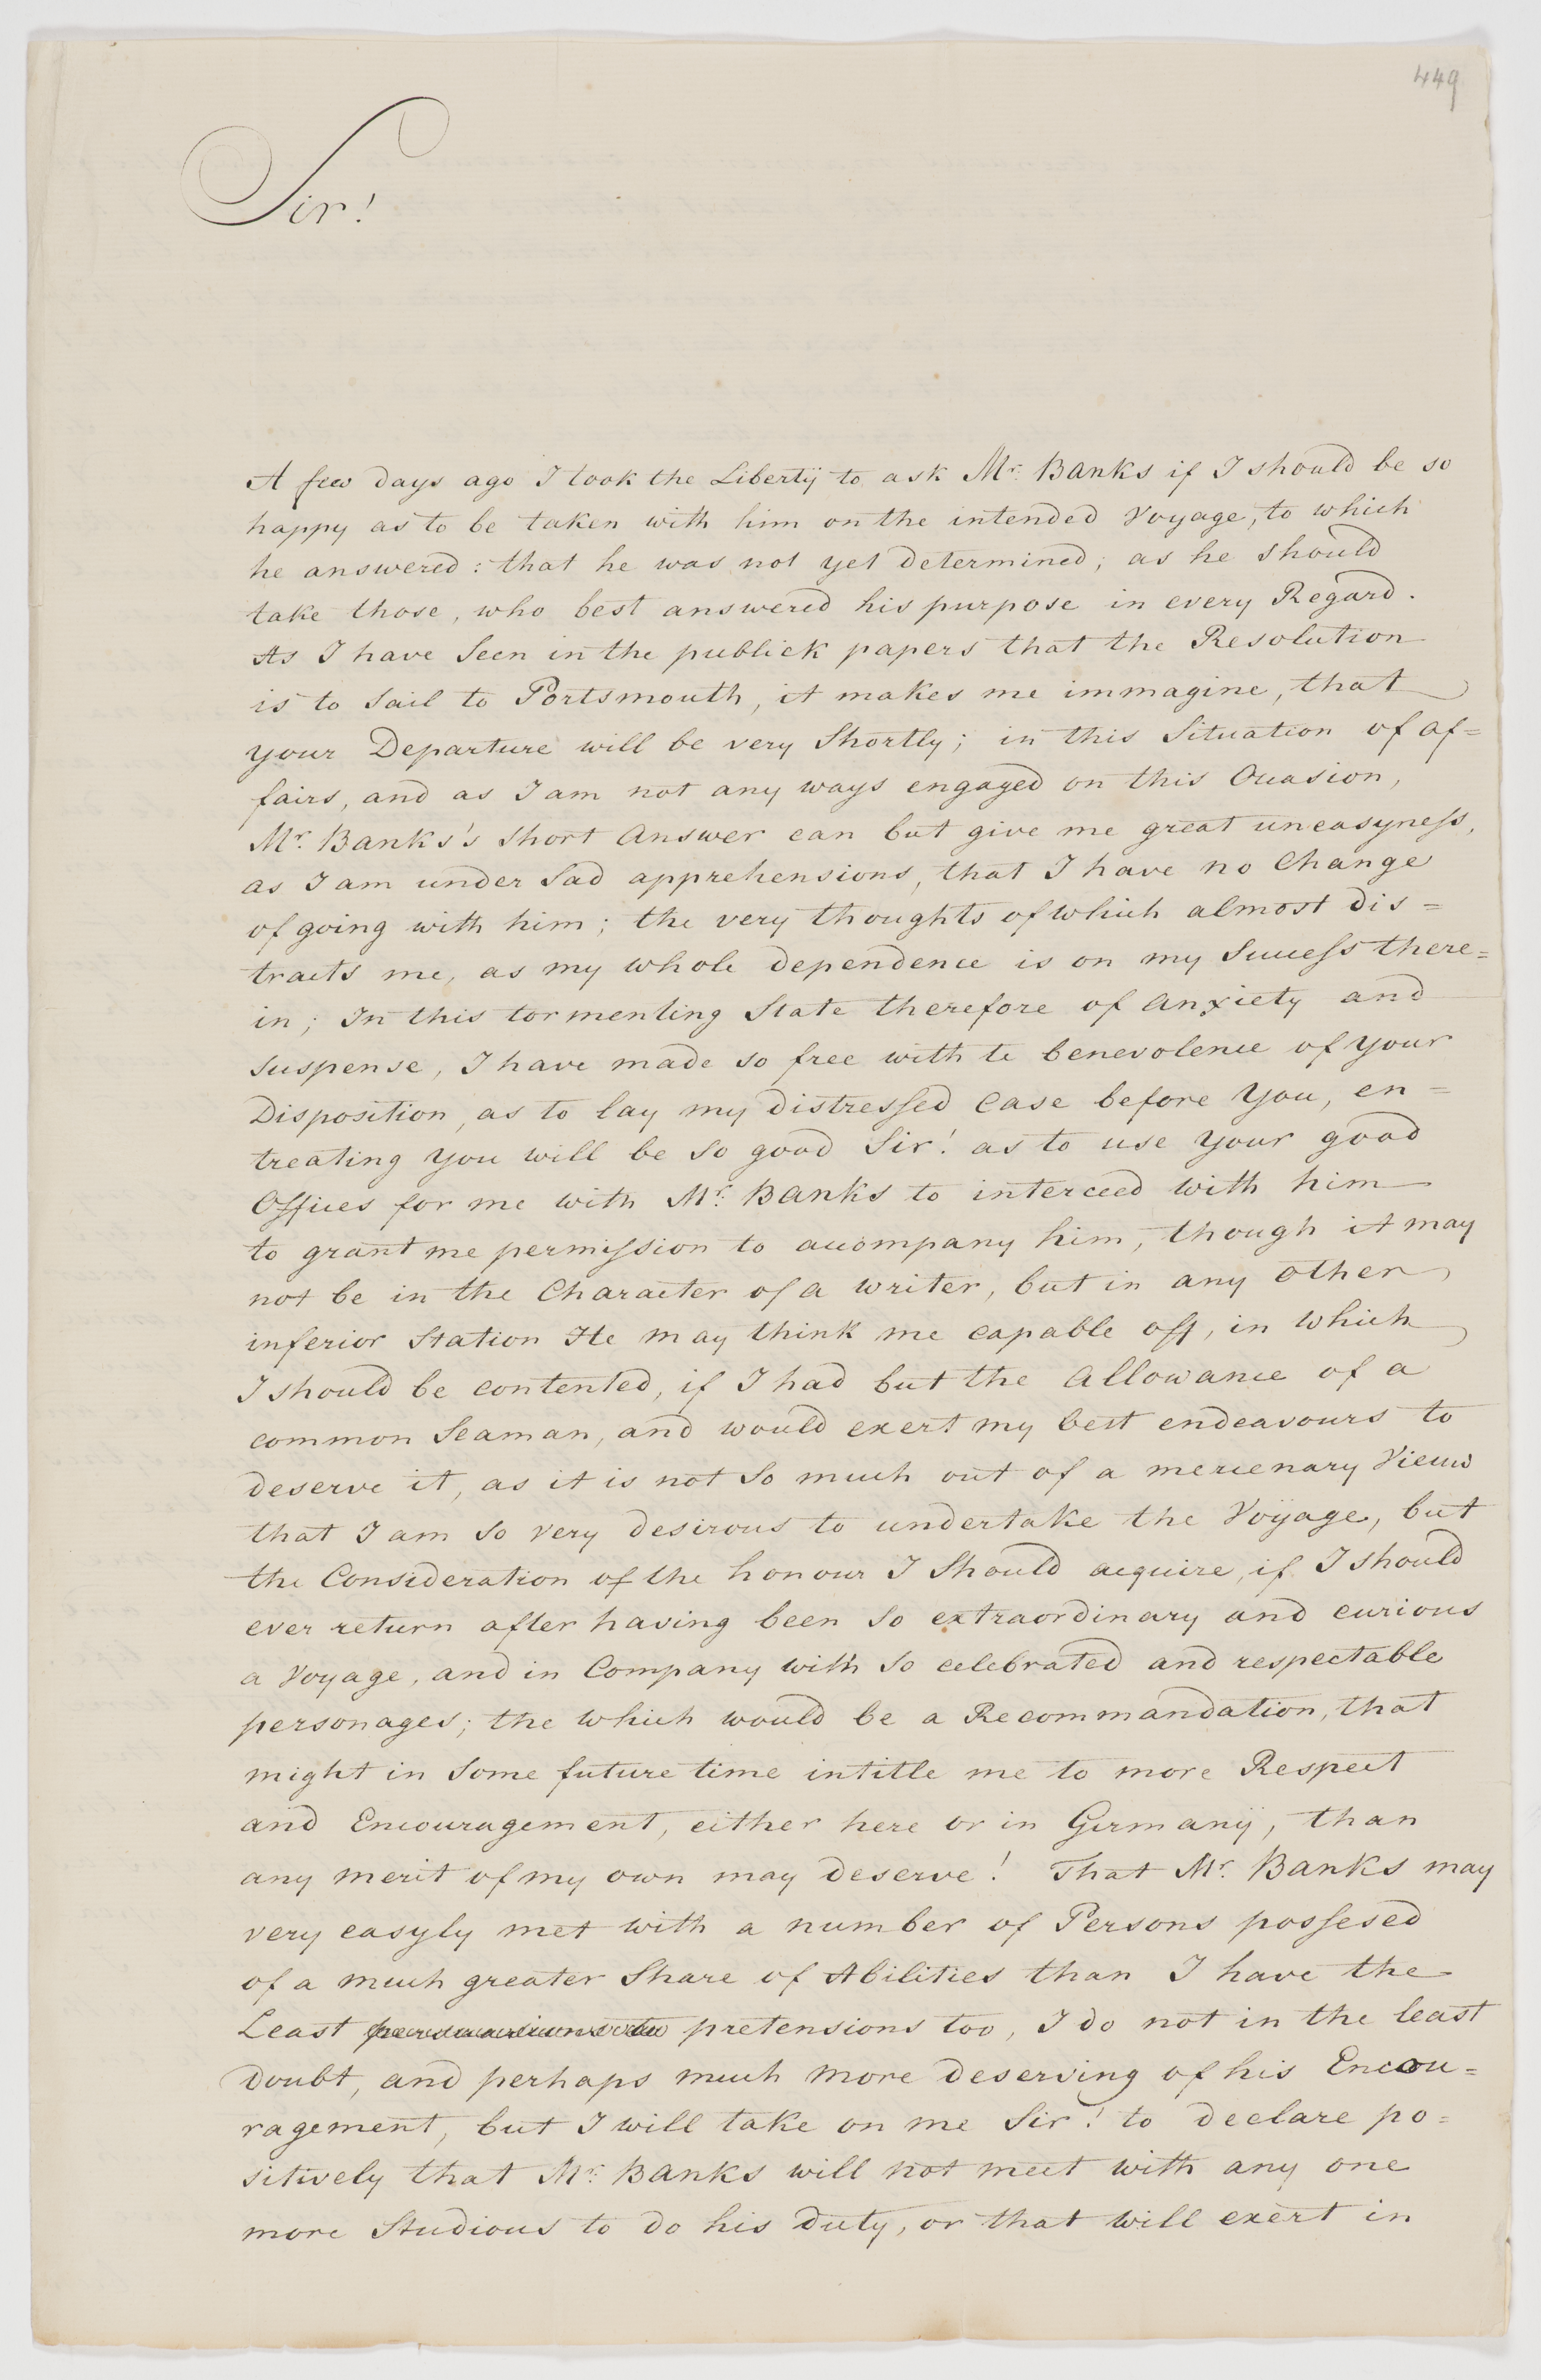 449
Sir!
A few days ago I took the Libertÿ to ask Mr. Banks if I should be so
happy as to be taken with him on the intended Voyage, to which
he answered: that he was not yet determined; as he should
take those, who best answered his purpose in every Regard.
As I have Seen in the publick papers that the Resolution
is to Sail to Portsmouth, it makes me immagine, that
your Departure will be very Shortly; in this Situation of af=
fairs, and as I am not any ways engaged on this Occasion,
Mr. Banks's Short Answer can but give me great uneasyness,
as I am under Sad apprehensions, that I have no Change
of going with him; the very thoughts of which almost dis=
tracts me, as my whole dependence is on my Success there=
in; In this tormenting State therefore of Anxiety and
Suspense, I have made so free with te benevolence of your
Disposition, as to lay my distressed Case before You, en=
treating you will be So good Sir! as to use your good
Offices for me with Mr. Banks to interceed with him
to grant me permission to accompany him, though it may
not be in the Character of a writer, but in any other
inferior Station He may think me capable off, in which
I should be contented, if I had but the Allowance of a
common Seaman, and would exert my best endeavours to
deserve it, as it is not So much out of a mercenary View
that I am So very desirous to undertake the Voÿage, but
the Consideration of the honour I Should acquire, if I should
ever return after having been So extraordinary and curious
a Voyage, and in Company with So celebrated and respectable
personages; the which would be a Recommandation, that
might in Some future time intitle me to more Respect
and Encouragement, either here or in Germanÿ, than
any merit of my own may deserve! That Mr. Banks may
very easyly met with a number of Persons possesed
of a much greater Share of Abilities than I have the
Least pretensions too, I do not in the least
Doubt, and perhaps much more deserving of his Encou=
ragement, but I will take on me Sir! to declare po=
sitively that Mr. Banks will not meet with any one
more Studious to do his Duty, or that will exert in